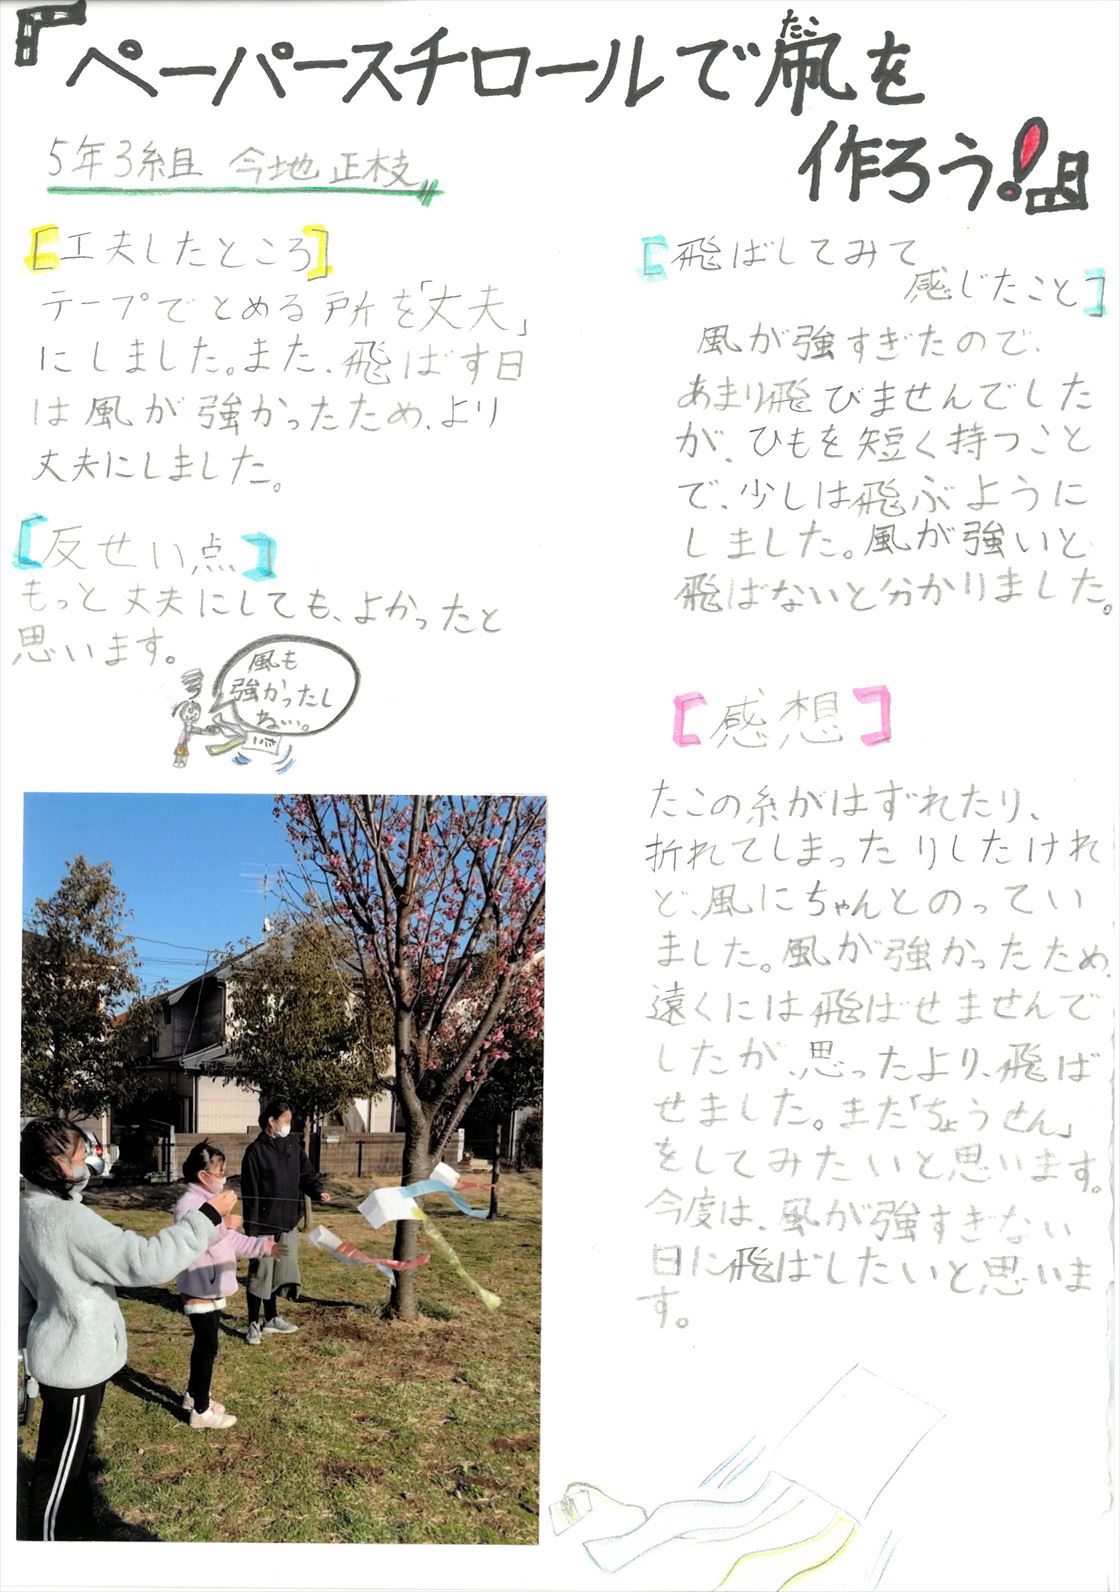 『ペーパースチロールで凧を
たこ
作ろう!』
5年3組 今地 正枝
[工夫したところ]
テープでとめる所を「丈夫」
にしました。また、飛ばす日
は風が強かったため、より
丈夫にしました。
[反せい点]
もっと丈夫にしても、よかったと
思います。
風も
強かったし
ね…。
[飛ばしてみて
感じたこと]
風が強すぎたので、
あまり飛びませんでした
が、ひもを短く持つこと
で、少しは飛ぶように
しました。風が強いと
飛ばないと分かりました。
[感想]
たこの糸がはずれたり、
折れてしまったりしたけれ
ど、風にちゃんとのってい
ました。風が強かったため
遠くには飛ばせませんで
したが、思ったより、飛ば
せました。まだ「ちょうせん」
をしてみたいと思います。
今度は、風が強すぎない
日に飛ばしたいと思いま
す。